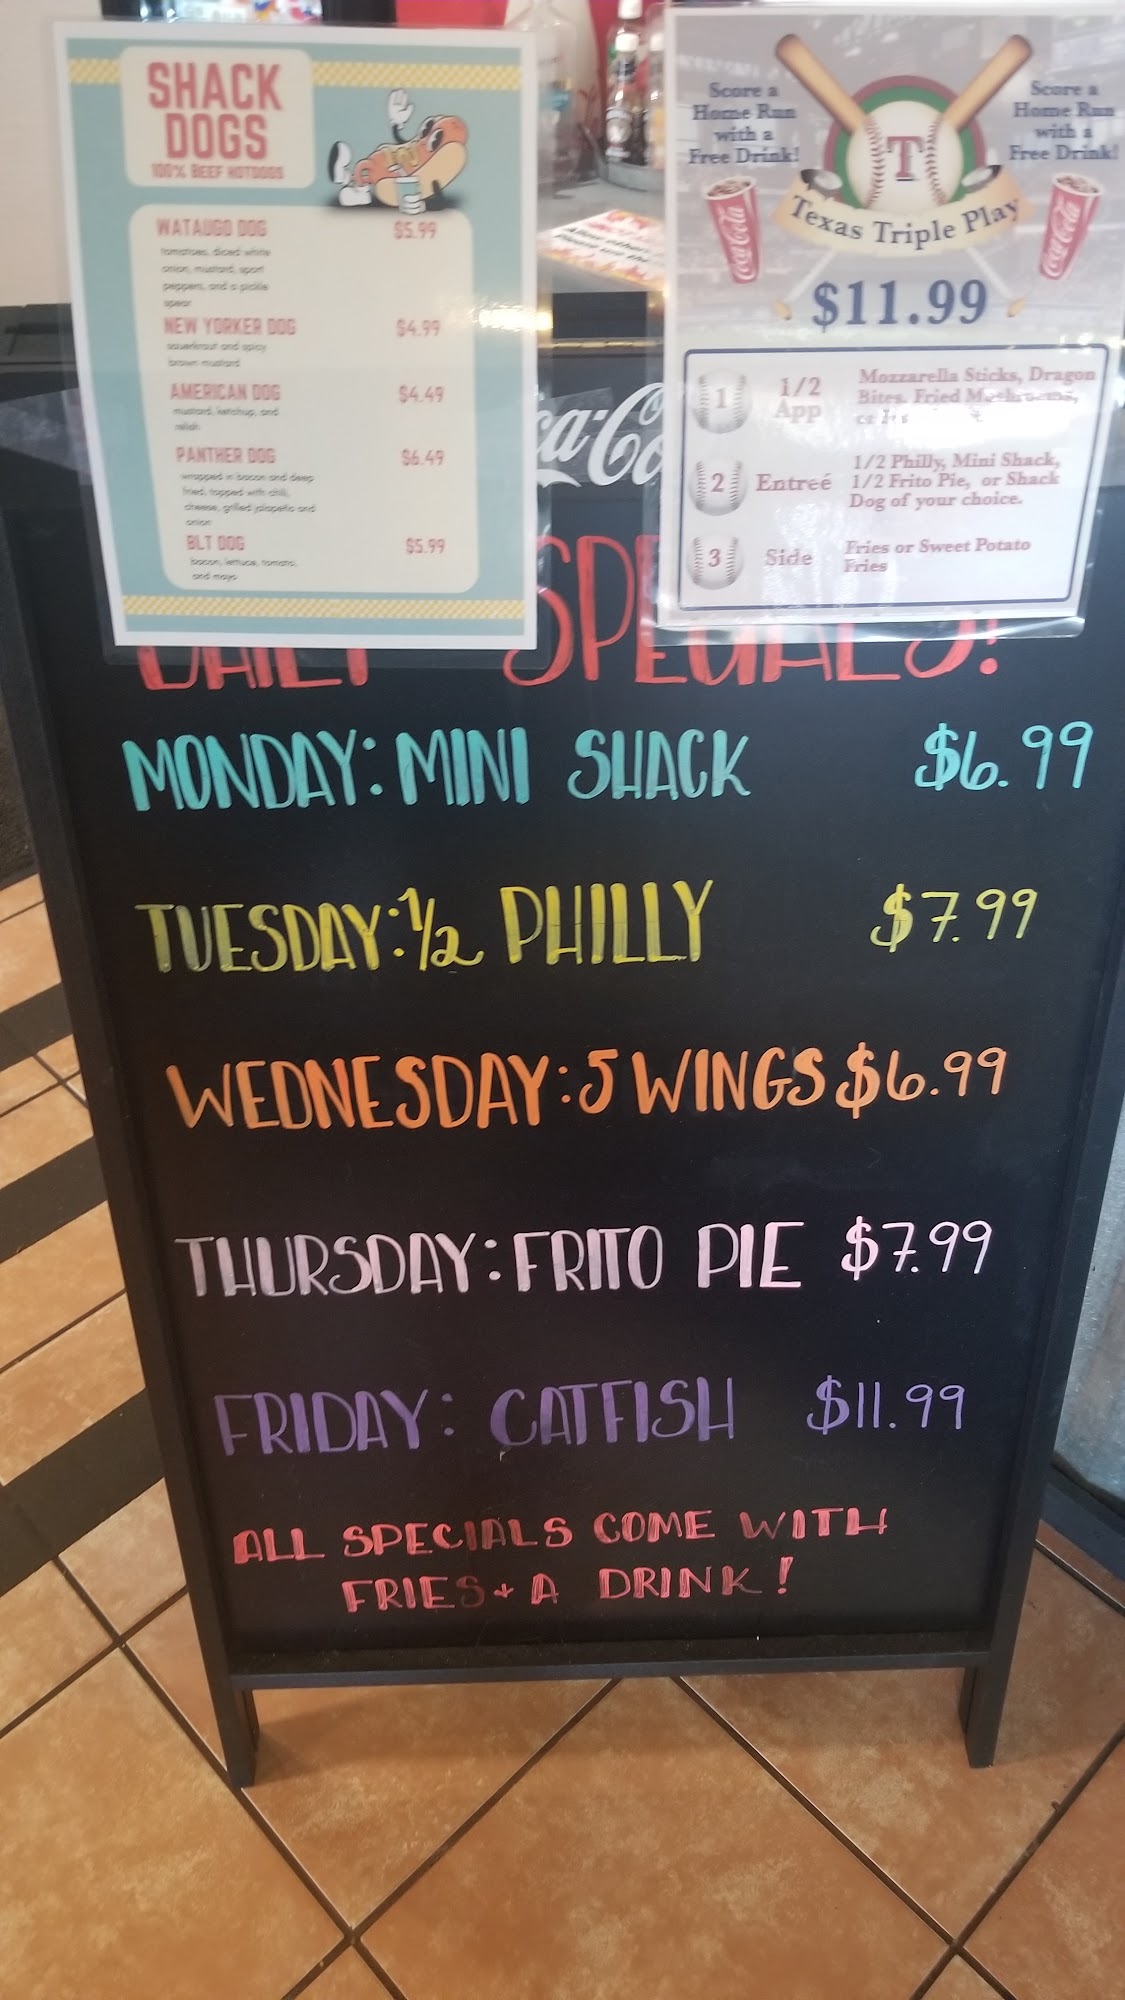 SHACK
DOGS
100% BEEF HOTDOGS
WATAUGO DOG $5.99
tomatoes, diced white
onion, mustard, sport
peppers, and a pickle
spear
NEW YORKER DOG $4.99
sauerkraut and spicy
brown mustard
AMERICAN DOG $4.49
mustard, ketchup, and
relish
PANTHER DOG $6.49
wrapped in bacon and deep
fried, topped with chili,
cheese, grilled jalapeño and
onion
BLT DOG $5.99
bacon, lettuce, tomato,
and mayo
Score a
Home Run
with a
Free Drink!
Score a
Home Run
with a
Free Drink!
T
Coca-Cola
Coca-Cola
Texas Triple Play
$11.99
1 1/2
App
Mozzarella Sticks, Dragon
Bites, Fried Mushrooms,
2 Entreé
1/2 Philly, Mini Shack,
1/2 Frito Pie, or Shack
Dog of your choice.
3 Side
Fries or Sweet Potato
Fries
ca-Co
DAILY SPECIALS!
MONDAY: MINI SHACK $6.99
TUESDAY: 1/2 PHILLY $7.99
WEDNESDAY: 5 WINGS $6.99
THURSDAY: FRITO PIE $7.99
FRIDAY: CATFISH $11.99
ALL SPECIALS COME WITH
FRIES + A DRINK!